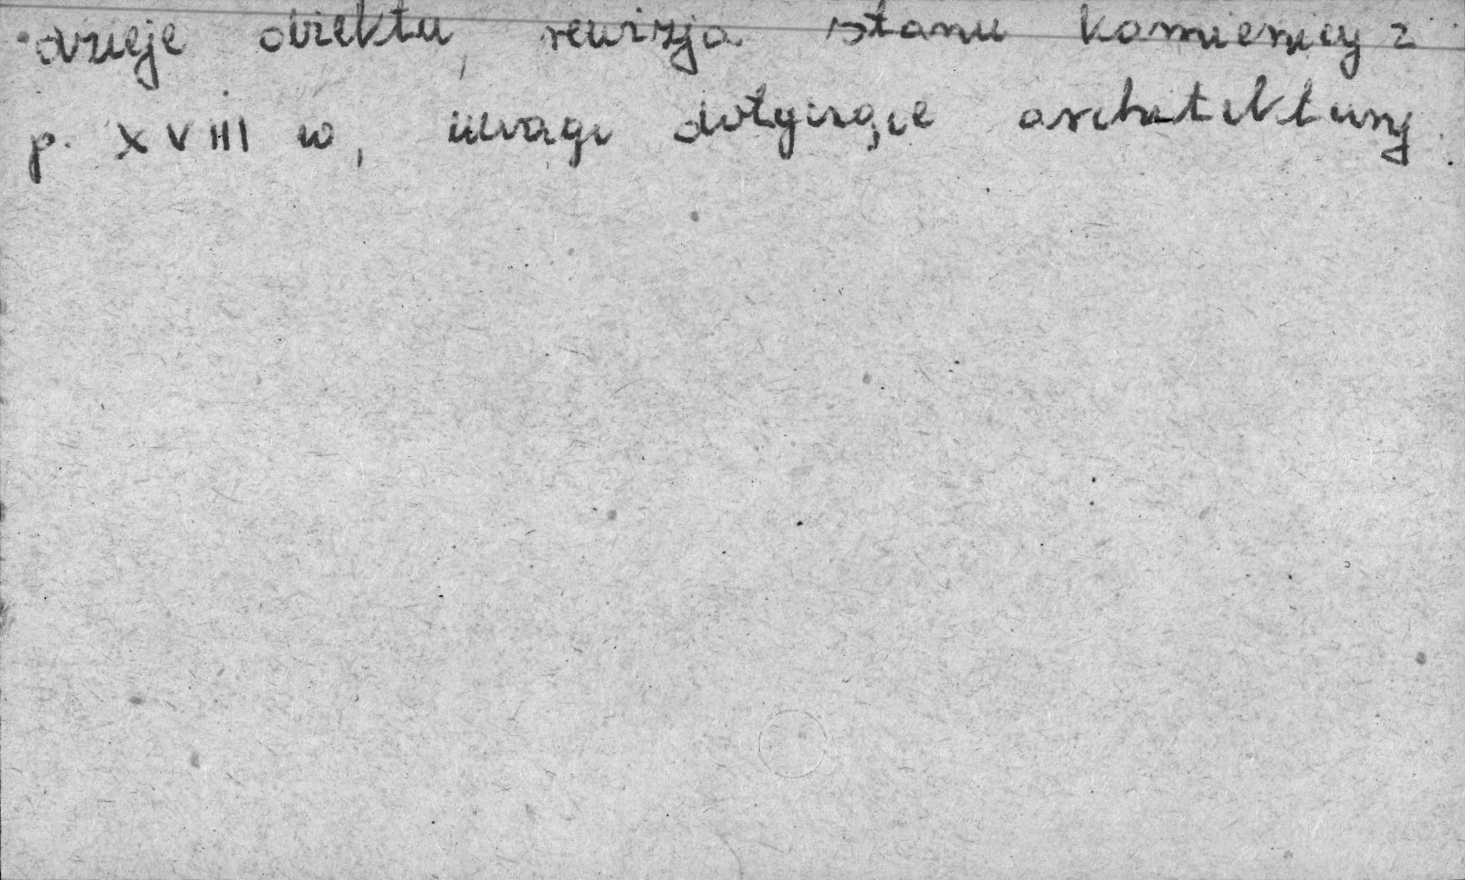 dzieje obiektu, rewizja stanu kamienicy z
p. XVIII w, uwagi dotyczące architektury.